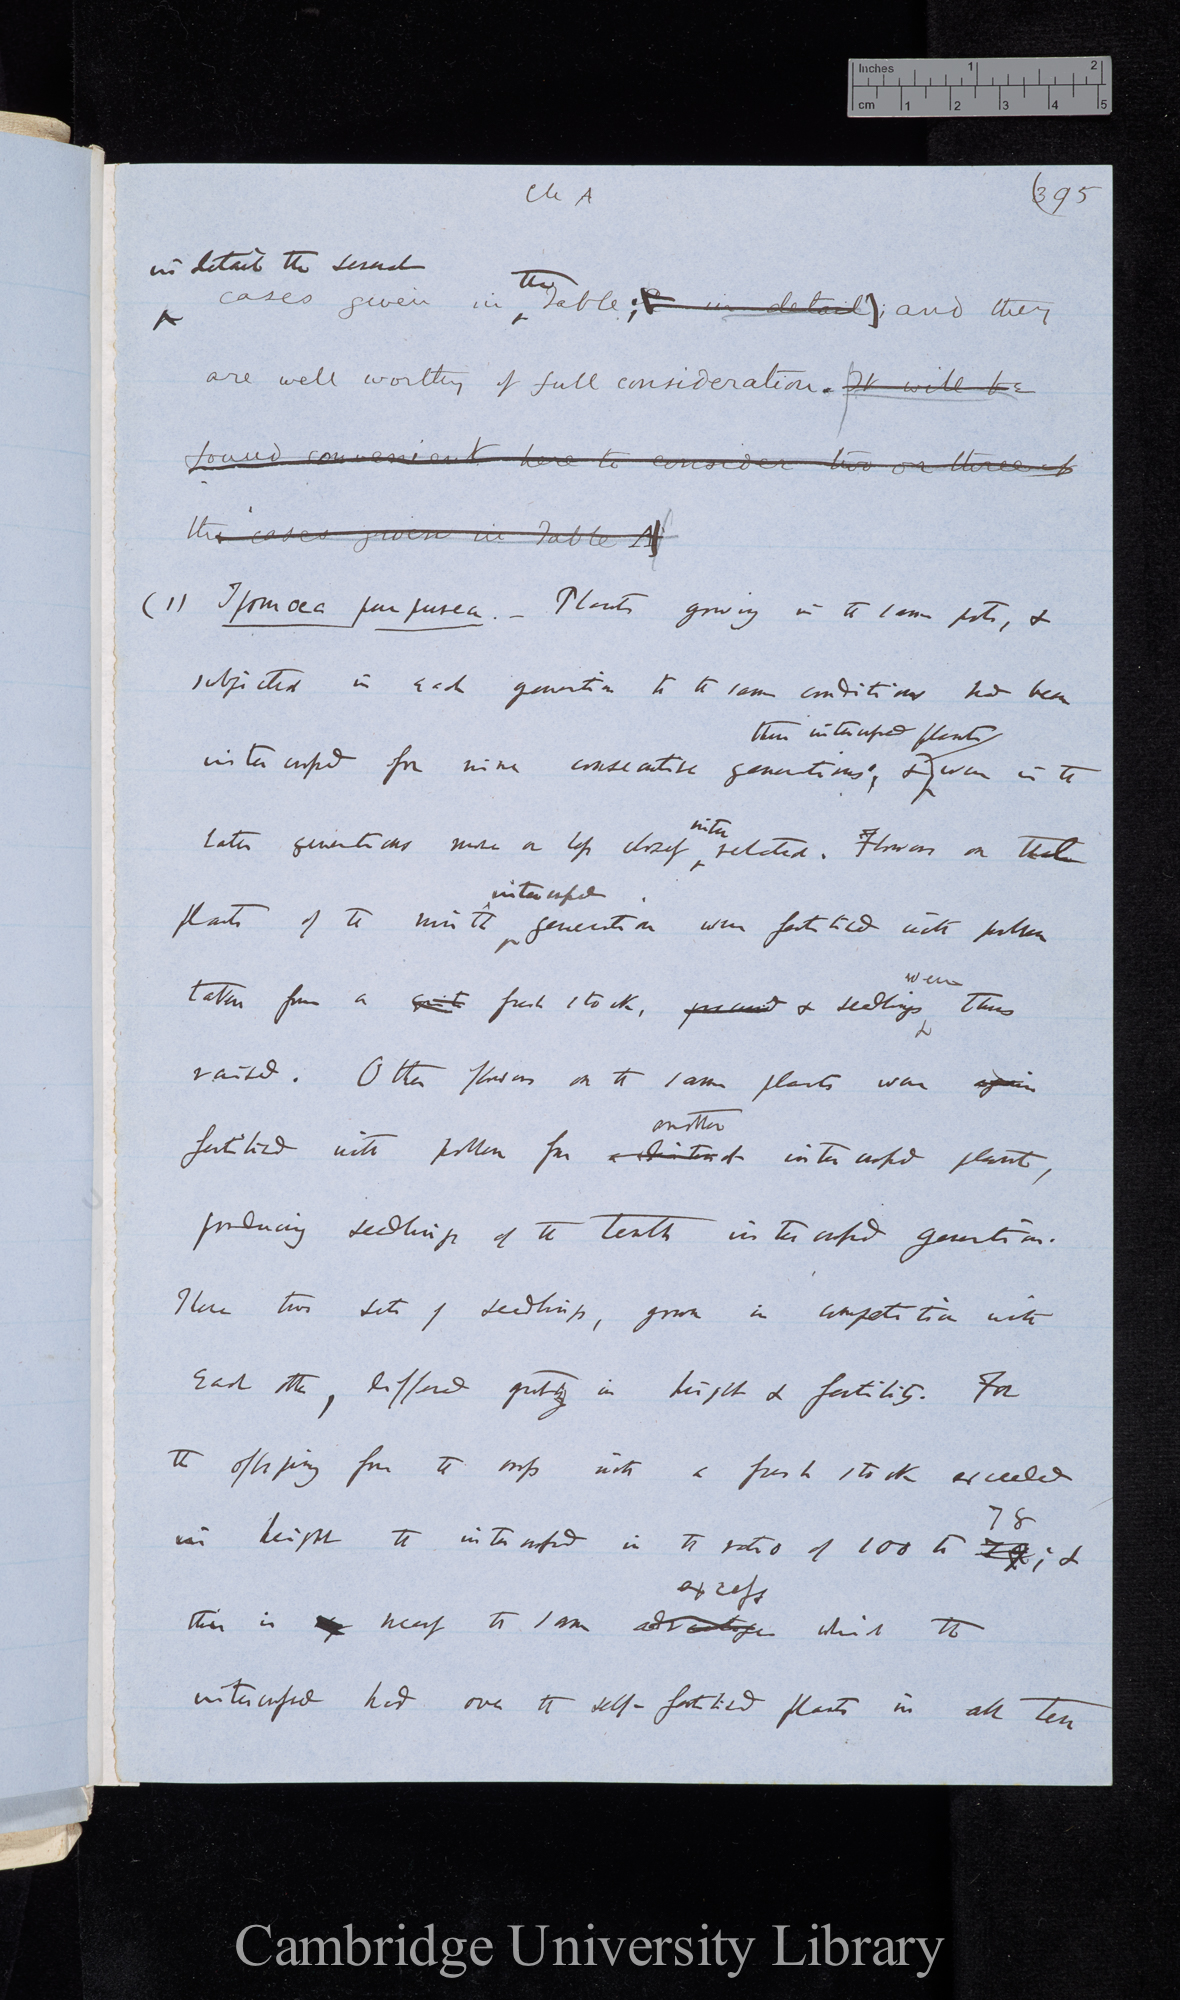 Inches 1 2
cm 1 2 3 4 5
Ch A
(395
in detail the several
cases given in the Table; & in detail); and they
are well worthy of full consideration. It will be
found convenient here to consider two or three of
the cases given in Table A
(1) Ipomoea purpurea. — Plants growing in the same pots, &
subjected in each generation to the same conditions had been
intercrossed for nine consecutive generations; & these intercrossed plants were in the
later generations more or less closely inter related. Flowers on
plants of the ninth intercrossed generation were fertilised with pollen
taken from a fresh stock, & seedlings were thus
raised. Other flowers on the same plants were again
fertilised with pollen from a distinct another intercrossed plant,
producing seedlings of the tenth intercrossed generation.
These two sets of seedlings, grown in competition with
each other, differed greatly in height & fertility. For
the offspring from the cross with a fresh stock exceeded
in height the intercrossed in the ratio of 100 to 78; &
this is nearly the same advantage excess which the
intercrossed had over the self-fertilised plants in all ten
Cambridge University Library